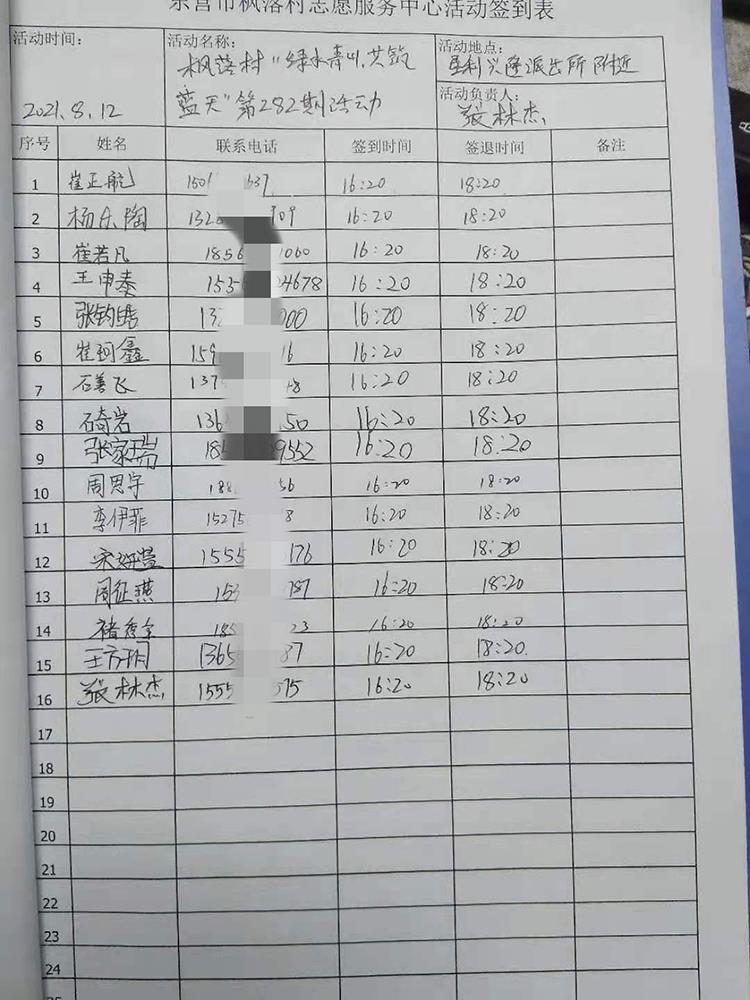 东营市枫落村志愿服务中心活动签到表
活动时间: 活动名称: 活动地点:
枫落村"绿水青山,共筑 垦利兴隆派出所附近
2021.8.12 蓝天"第282期活动 活动负责人:
张林杰
序号 姓名 联系电话 签到时间 签退时间 备注
1 崔正航 150 637 16:20 18:20
2 杨乐陶 132 909 16:20 18:20
3 崔若凡 1856 1060 16:20 18:20
4 王申泰 1535 24678 16:20 18:20
5 张钧皓 132 000 16:20 18:20
6 崔珂鑫 159 16 16:20 18:20
7 石善飞 137 48 16:20 18:20
8 石奇岩 136 50 16:20 18:20
9 张家瑞 185 9552 16:20 18:20
10 周思宇 188 56 16:20 18:20
11 李伊菲 15275 8 16:20 18:20
12 宋妍萱 1555 176 16:20 18:20
13 周征燕 153 787 16:20 18:20
14 褚 18 23 16:20 18:20
15 王方玥 1365 87 16:20 18:20
16 张林杰 1555 575 16:20 18:20
17
18
19
20
21
22
23
24